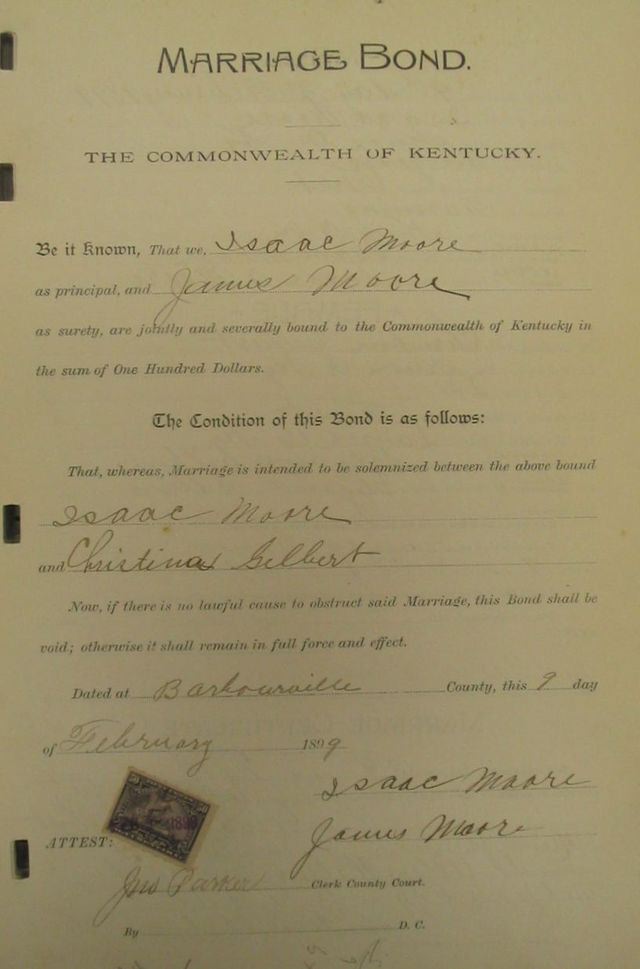 MARRIAGE BOND.
THE COMMONWEALTH OF KENTUCKY.
Be it Known, That we, Isaac Moore
as principal, and James Moore
as surety, are jointly and severally bound to the Commonwealth of Kentucky in
the sum of One Hundred Dollars.
The Condition of this Bond is as follows:
That, whereas, Marriage is intended to be solemnized between the above bound
Isaac Moore
and Christina Gilbert
Now, if there is no lawful cause to obstruct said Marriage, this Bond shall be
void; otherwise it shall remain in full force and effect.
Dated at Barbourville County, this 9 day
of February 1899
Isaac Moore
James Moore
ATTEST:
Jno Parker Clerk County Court.
By D. C.